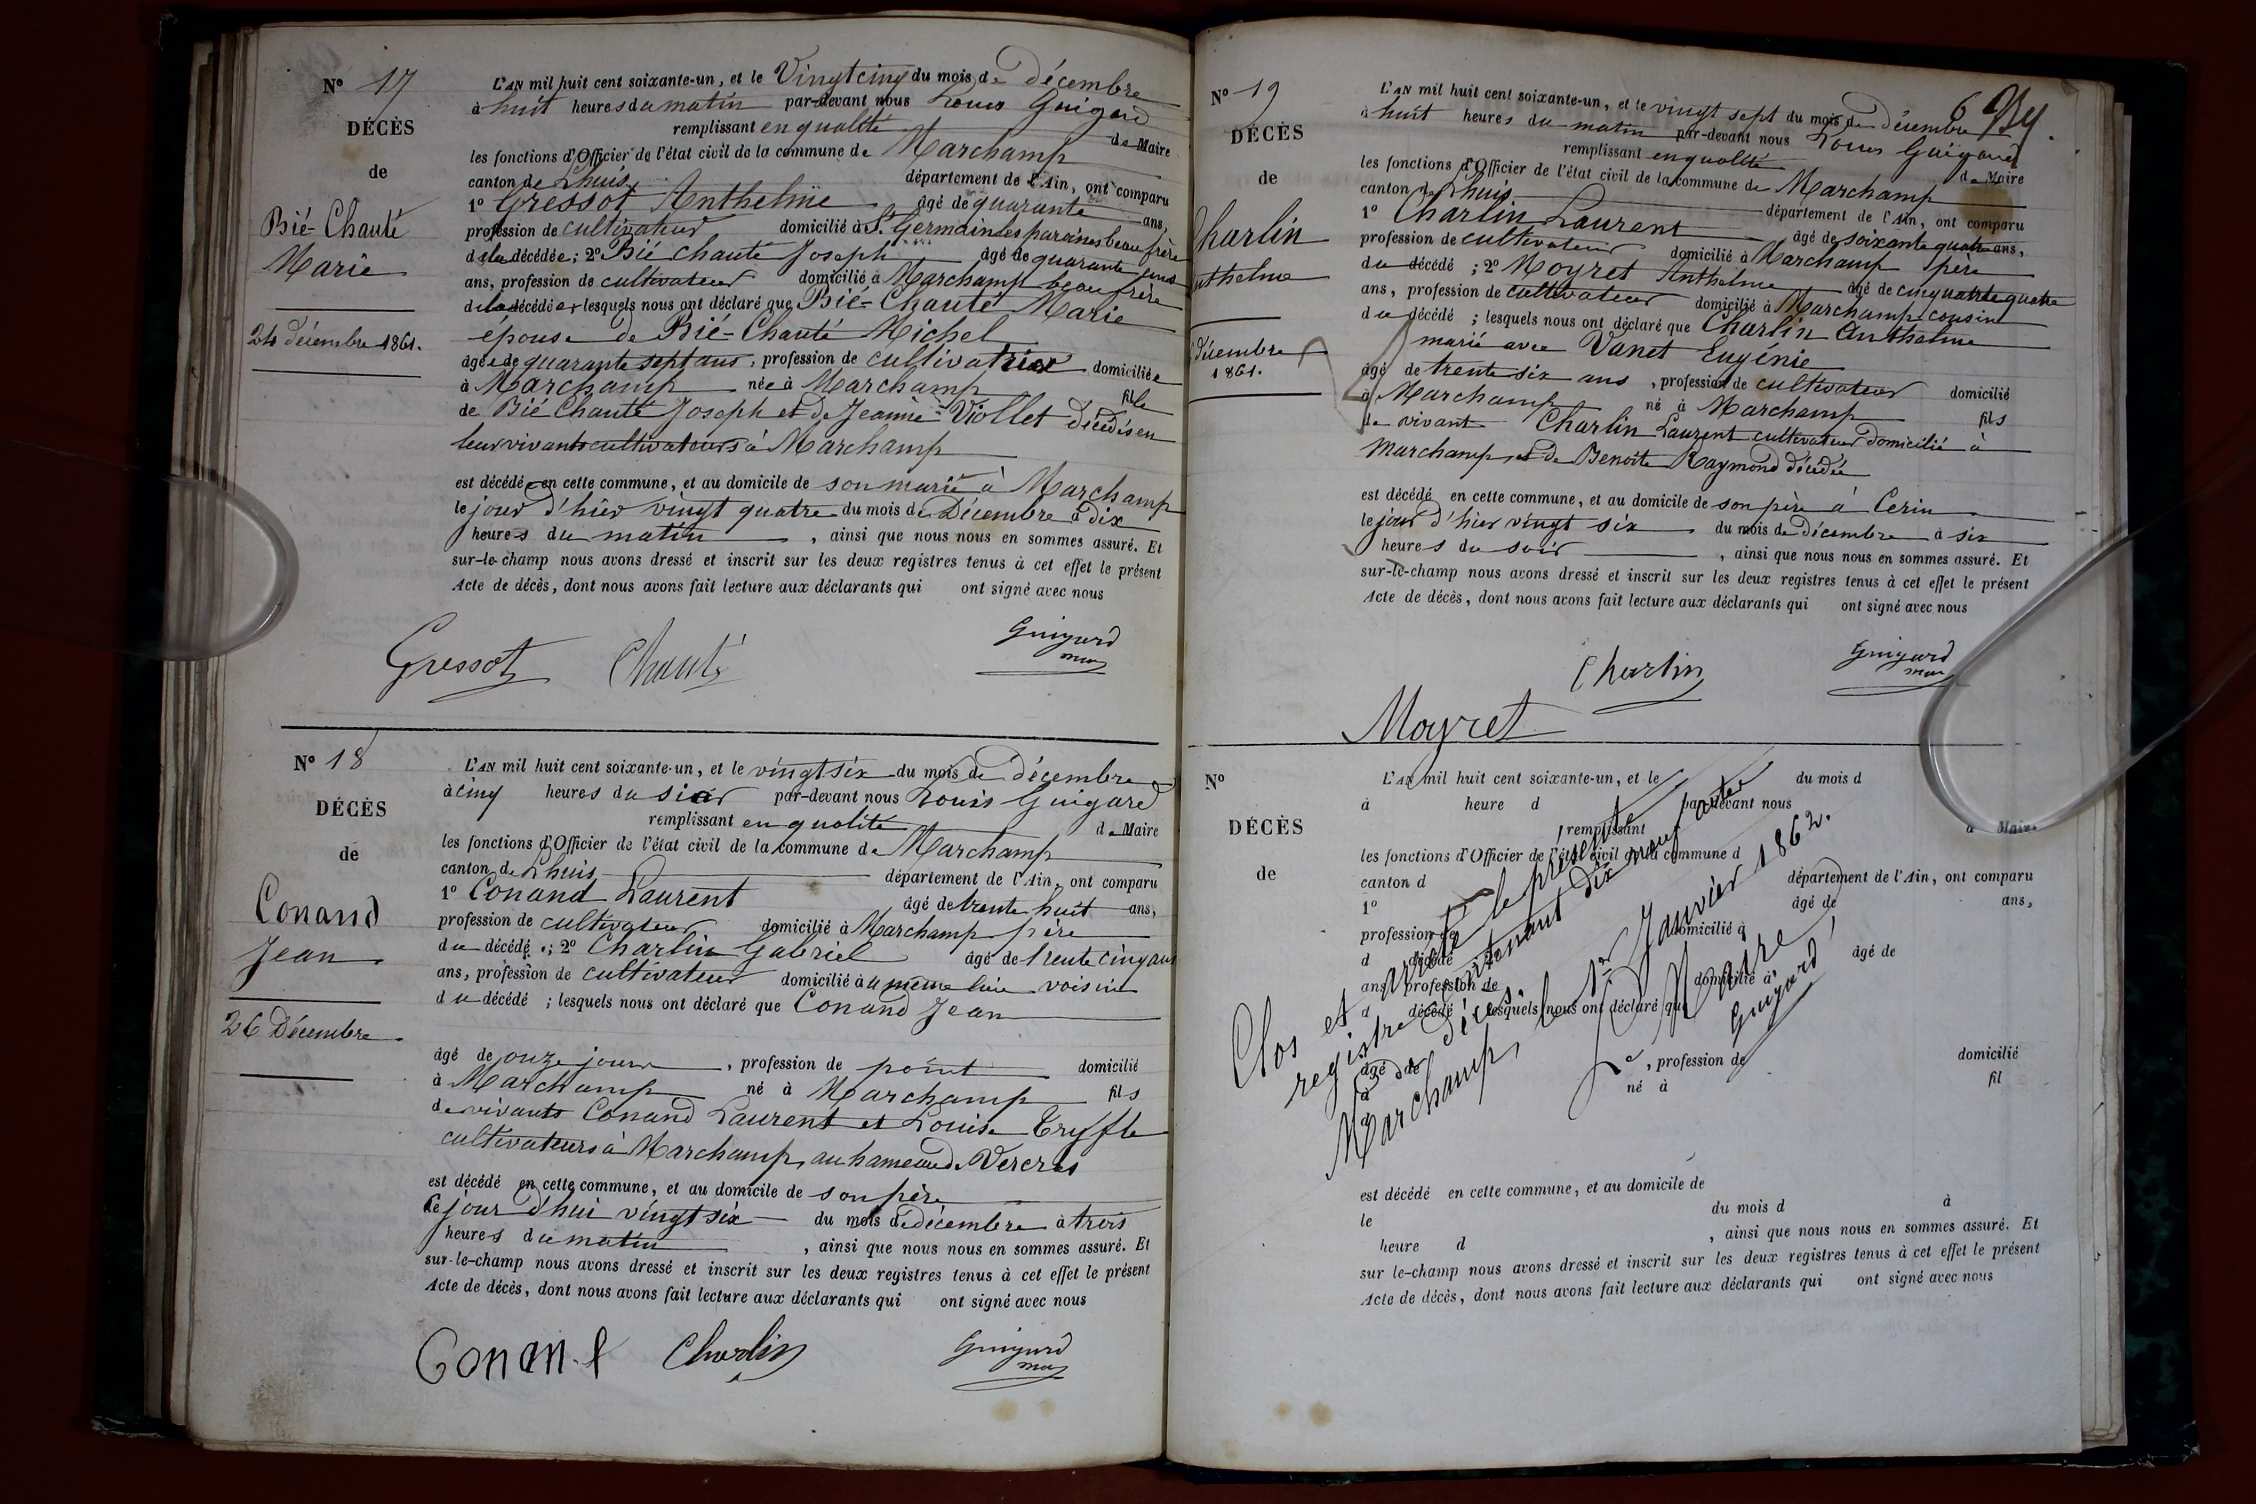 N° 17
DÉCÈS
de
Bié-Chauté
Marie
24 décembre 1861.
L'AN mil huit cent soixante-un, et le Vingt cinq du mois de décembre
à huit heures du matin par-devant nous Louis Guigard
remplissant en qualité de Maire
les fonctions d'Officier de l'état civil de la commune de Marchamp
canton de Lhuis département de l'Ain, ont comparu
1° Gressot Anthelme âgé de quarante ans,
profession de cultivateur domicilié à St Germain les paroisses beau frère
de la décédée; 2° Bié chauté Joseph âgé de quarante
ans, profession de cultivateur domicilié à Marchamp beau frère
de la décédée; lesquels nous ont déclaré que Bié-Chauté Marie
épouse de Bié-Chauté Michel
âgée de quarante sept ans, profession de cultivatrice domiciliée
à Marchamp née à Marchamp fille
de Bié Chauté Joseph et de Jeanne Viollet décédés en
leur vivants cultivateurs à Marchamp
est décédée en cette commune, et au domicile de son marie à Marchamp
le jour d'hier vingt quatre du mois de Décembre à dix
heures du matin, ainsi que nous nous en sommes assuré. Et
sur-le-champ nous avons dressé et inscrit sur les deux registres tenus à cet effet le présent
Acte de décès, dont nous avons fait lecture aux déclarants qui ont signé avec nous
Gressot Chauté Guigard
N° 18
DÉCÈS
de
Conand
Jean
26 Décembre
L'AN mil huit cent soixante-un, et le vingt six du mois de décembre
à cinq heures du soir par-devant nous Louis Guigard
remplissant en qualité de Maire
les fonctions d'Officier de l'état civil de la commune de Marchamp
canton de Lhuis département de l'Ain, ont comparu
1° Conand Laurent âgé de trente huit ans,
profession de cultivateur domicilié à Marchamp père
du décédé; 2° Charlin Gabriel âgé de trente cinq ans
ans, profession de cultivateur domicilié à u même lieu voisin
du décédé; lesquels nous ont déclaré que Conand Jean
âgé de onze jours, profession de point domicilié
à Marchamp né à Marchamp fils
de vivants Conand Laurent et Louise Tryffle
cultivateurs à Marchamp, au hameau de Vercras
est décédé en cette commune, et au domicile de son père
le jour d'hui vingt six du mois de décembre à trois
heures du matin, ainsi que nous nous en sommes assuré. Et
sur-le-champ nous avons dressé et inscrit sur les deux registres tenus à cet effet le présent
Acte de décès, dont nous avons fait lecture aux déclarants qui ont signé avec nous
Conand Charlin Guigard
N° 19
DÉCÈS
de
Charlin
nthelme
décembre
1861.
6
L'AN mil huit cent soixante-un, et le vingt sept du mois de décembre
à huit heures du matin par-devant nous Louis Guigard
remplissant en qualité de Maire
les fonctions d'Officier de l'état civil de la commune de Marchamp
canton de Lhuis département de l'Ain, ont comparu
1° Charlin Laurent âgé de soixante quatre ans,
profession de cultivateur domicilié à Marchamp père
du décédé; 2° Moyret Anthelme âgé de cinquante quatre
ans, profession de cultivateur domicilié à Marchamp cousin
du décédé; lesquels nous ont déclaré que Charlin Anthelme
marié avec Vanet Eugénie
âgé de trente six ans, profession de cultivateur domicilié
à Marchamp né à Marchamp fils
de vivant Charlin Laurent cultivateur domicilié à
Marchamp, et de Benoite Raymond décédée
est décédé en cette commune, et au domicile de son père à Cerin
le jour d'hier vingt six du mois de décembre à six
heures du soir, ainsi que nous nous en sommes assuré. Et
sur-le-champ nous avons dressé et inscrit sur les deux registres tenus à cet effet le présent
Acte de décès, dont nous avons fait lecture aux déclarants qui ont signé avec nous
Charlin Guigard
Moyret
N°
DÉCÈS
de
L'AN mil huit cent soixante-un, et le du mois d
à heure d par-devant nous
remplissant d Maire
les fonctions d'Officier de l'état civil de la commune d
canton d département de l'Ain, ont comparu
1° âgé de ans,
profession de domicilié à
d décédé 2° âgé de
ans, profession de domicilié à
d décédé lesquels nous ont déclaré que
âgé de, profession de domicilié
à né à fil
de
Clos et arrêté le présent
registre contenant dix neuf actes
de décès.
Marchamp, le 1er Janvier 1862.
Le Maire
Guigard
est décédé en cette commune, et au domicile de
le du mois d à
heure d, ainsi que nous nous en sommes assuré. Et
sur le-champ nous avons dressé et inscrit sur les deux registres tenus à cet effet le présent
Acte de décès, dont nous avons fait lecture aux déclarants qui ont signé avec nous